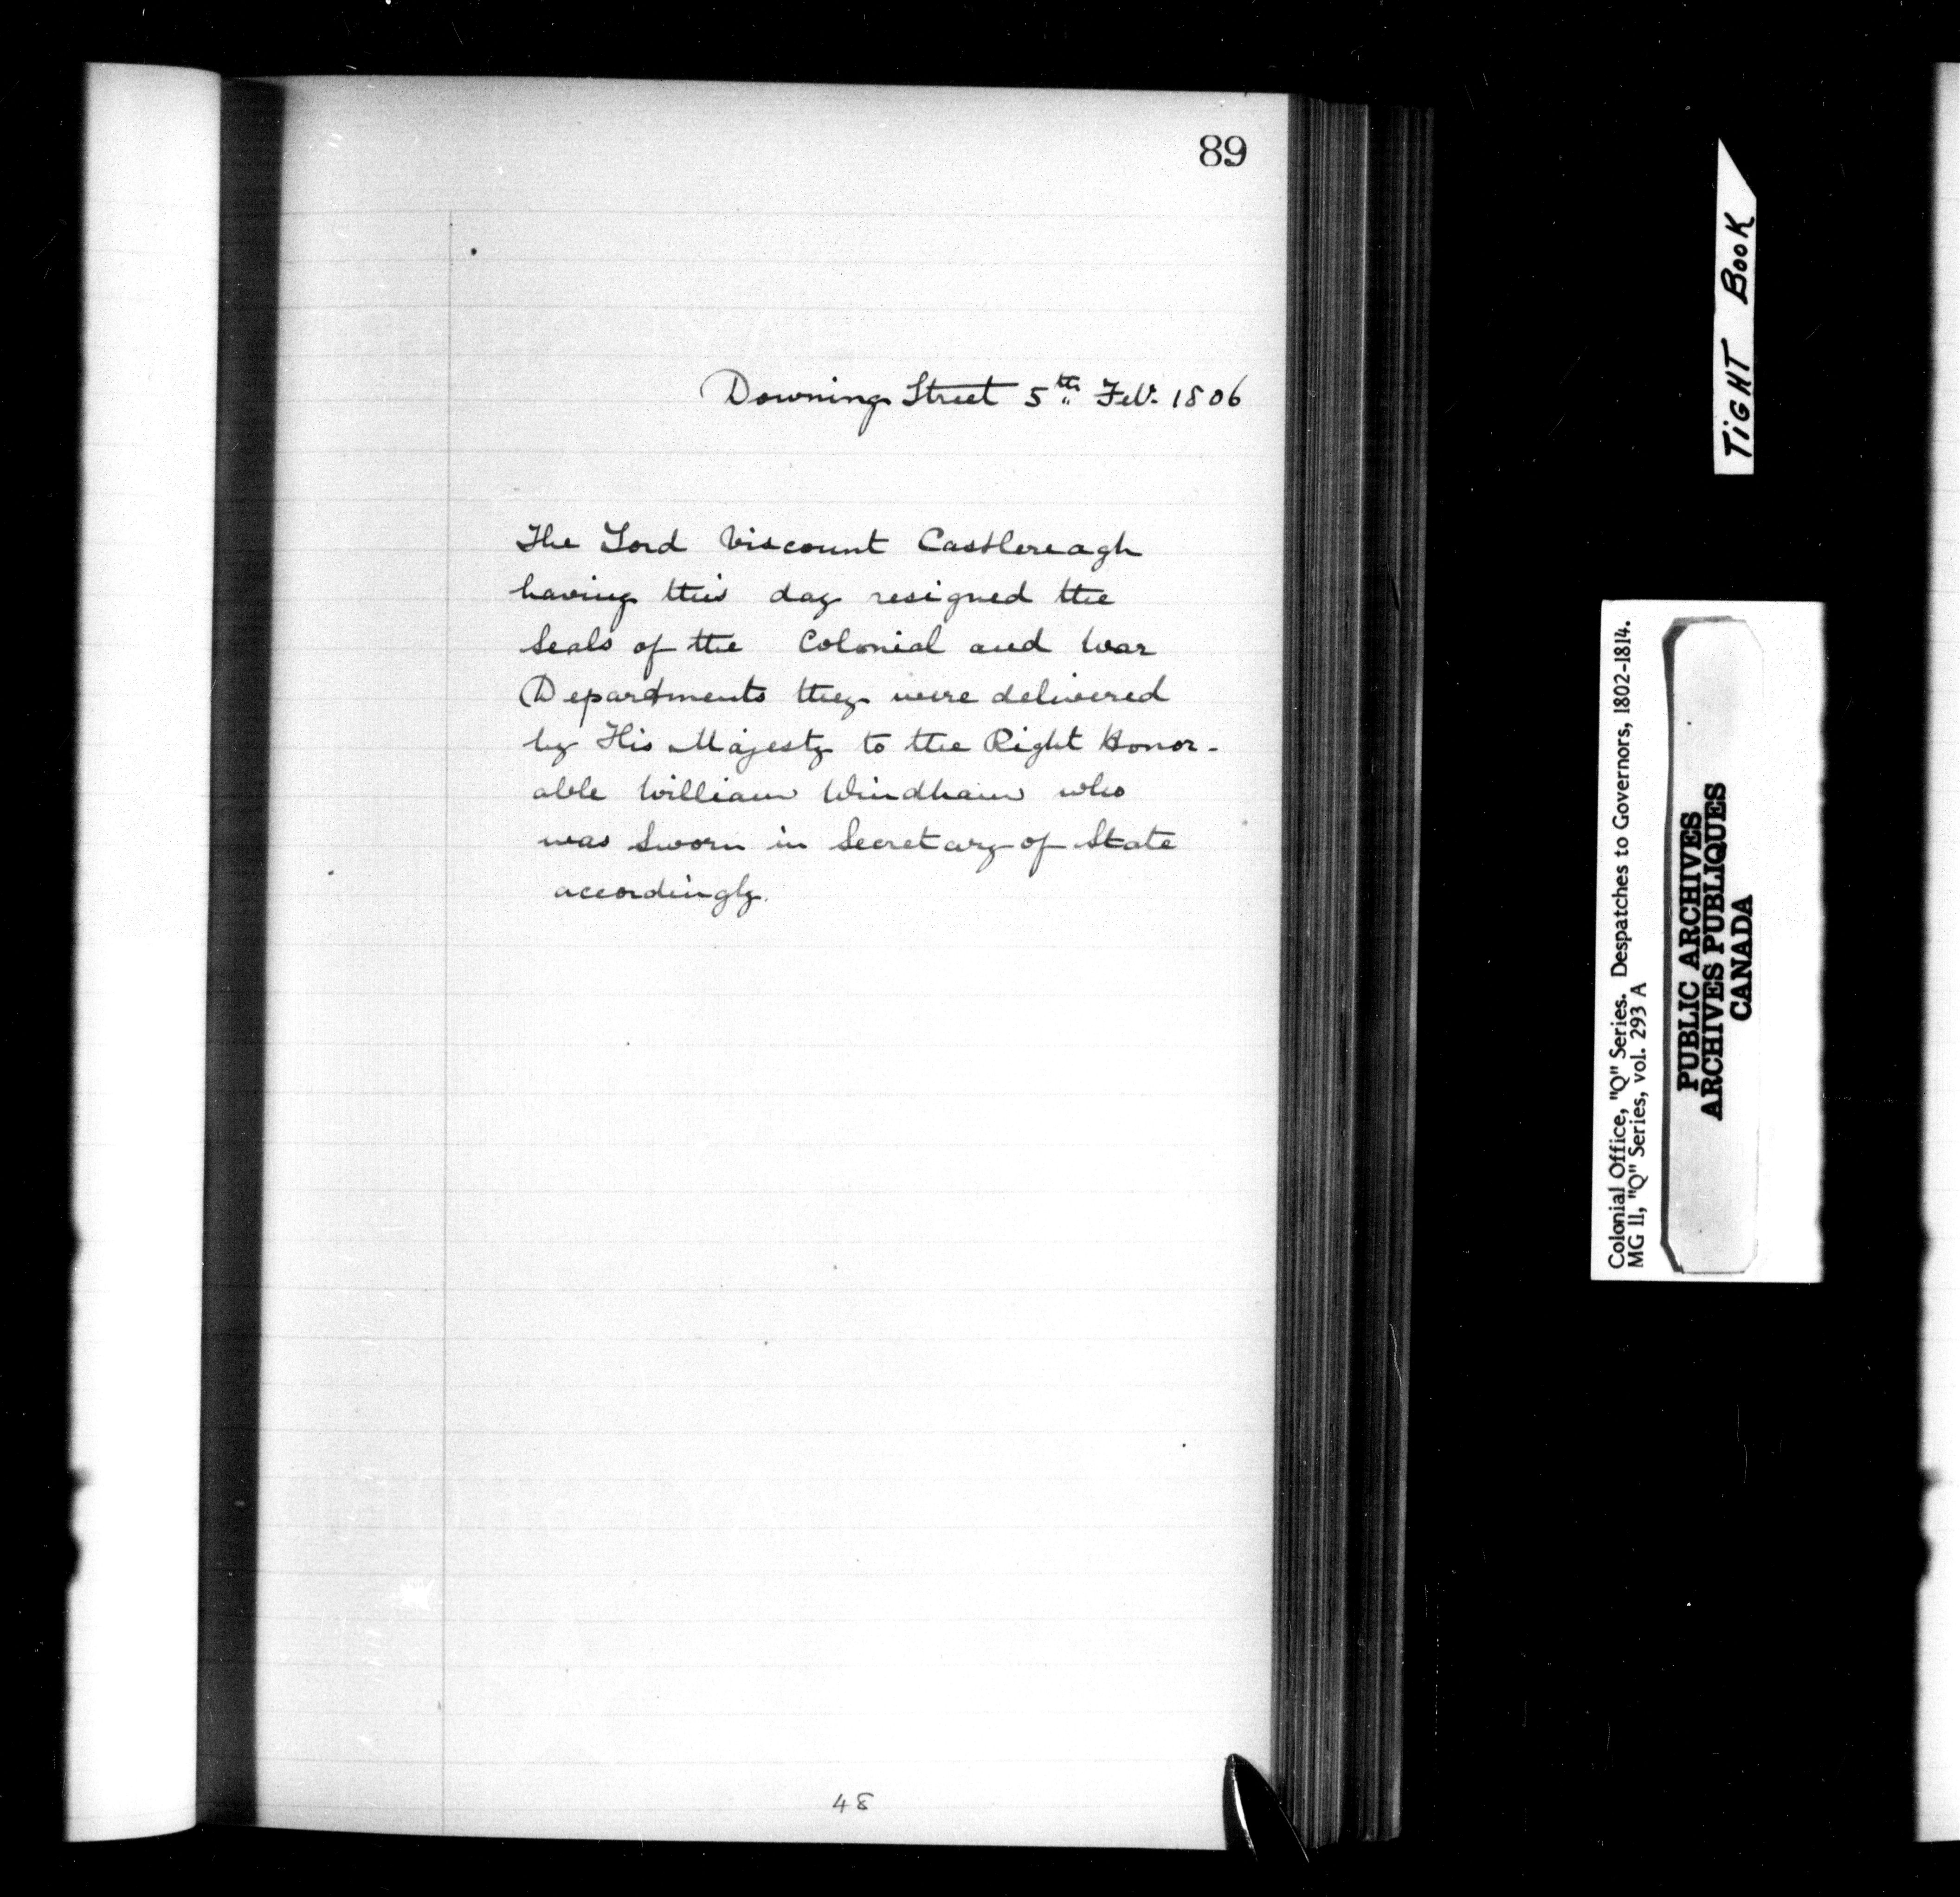 89
Downing Street 5th Feb. 1806
The Lord Viscount Castlereagh
having this day resigned the
Seals of the Colonial and War
Departments they were delivered
by His Majesty to the Right Honor-
able William Windham who
was Sworn in Secretary of State
accordingly.
48
TIGHT BOOK
Colonial Office, "Q" Series. Despatches to Governors, 1802-1814.
MG 11, "Q" Series, vol. 293 A
PUBLIC ARCHIVES
ARCHIVES PUBLIQUES
CANADA